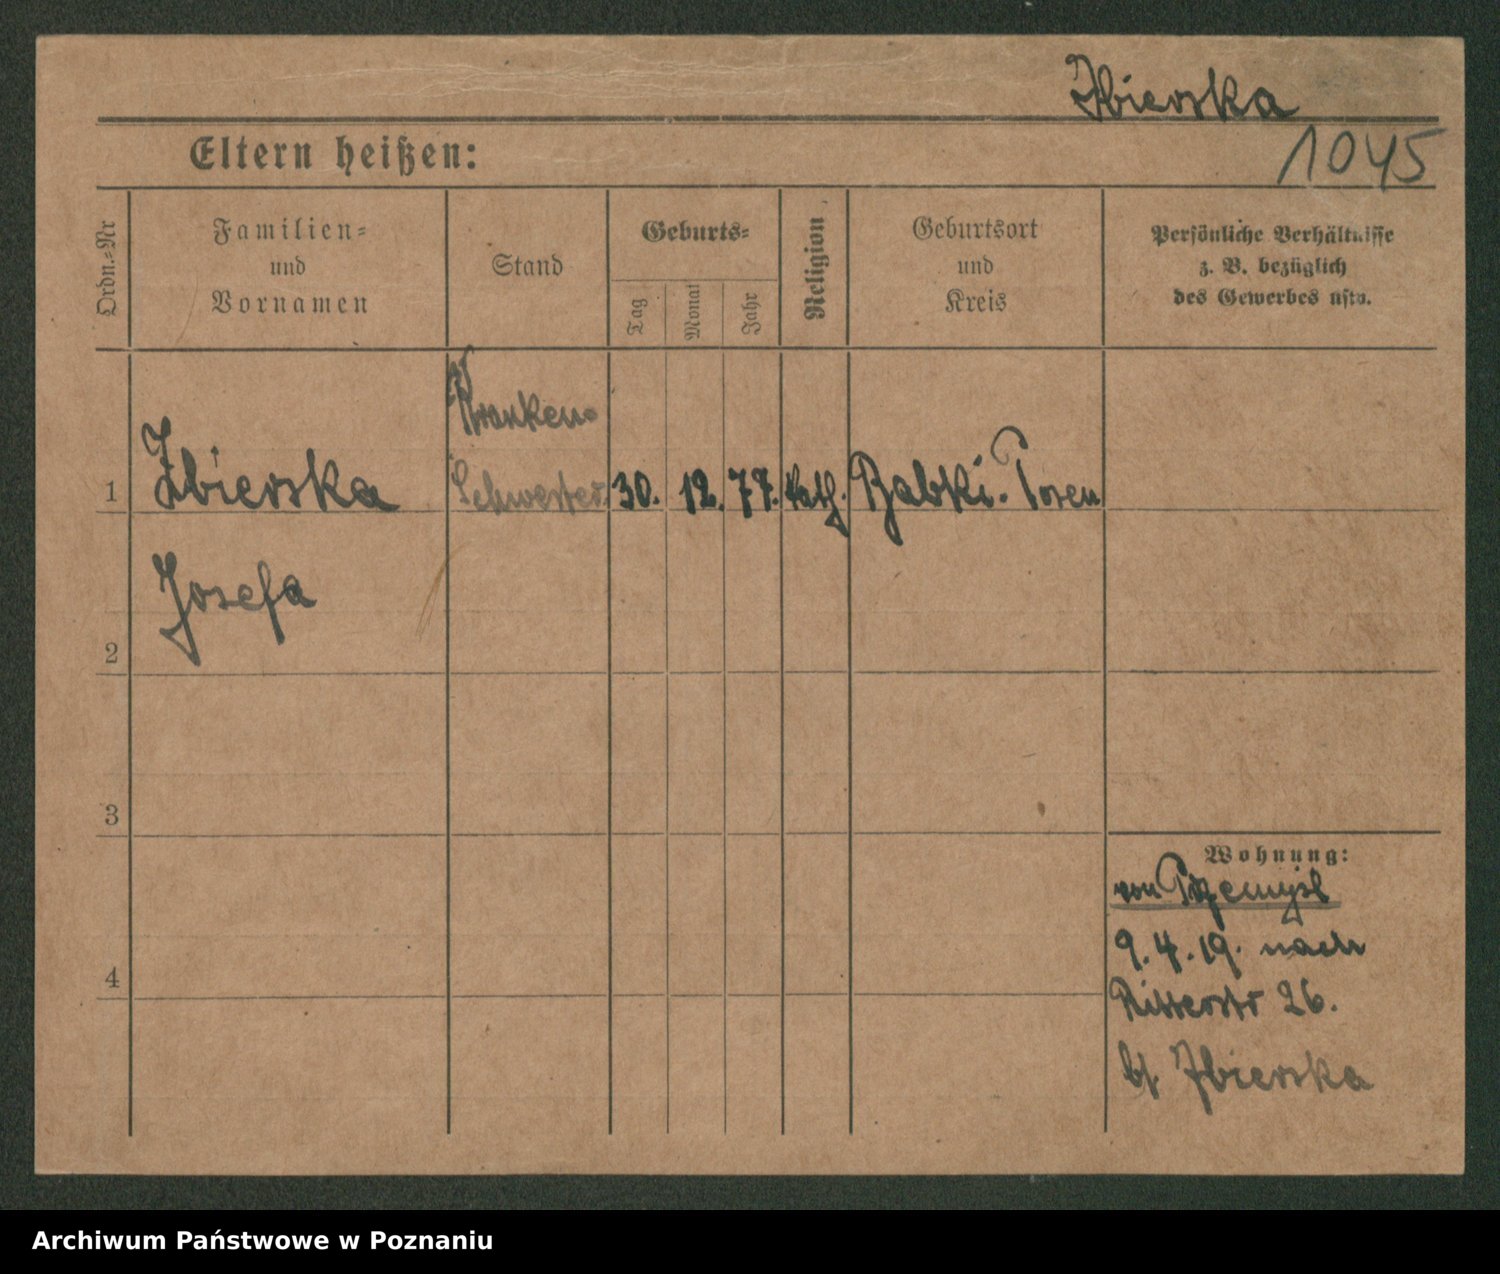 Zbierska
Eltern heißen:
1045
Ordn.-Nr
Familien-
und
Vornamen
Stand
Geburts-
Tag
Monat
Jahr
Religion
Geburtsort
und
Kreis
Persönliche Verhältnisse
z. B. bezüglich
des Gewerbes usw.
Kranken-
1 Zbierska Schwester 30. 12. 77. kath. Babki. Posen
Josefa
2
3
Wohnung:
von Przemysl
9. 4. 19. nach
4
Ritterstr 26.
bf Zbierska
Archiwum Państwowe w Poznaniu